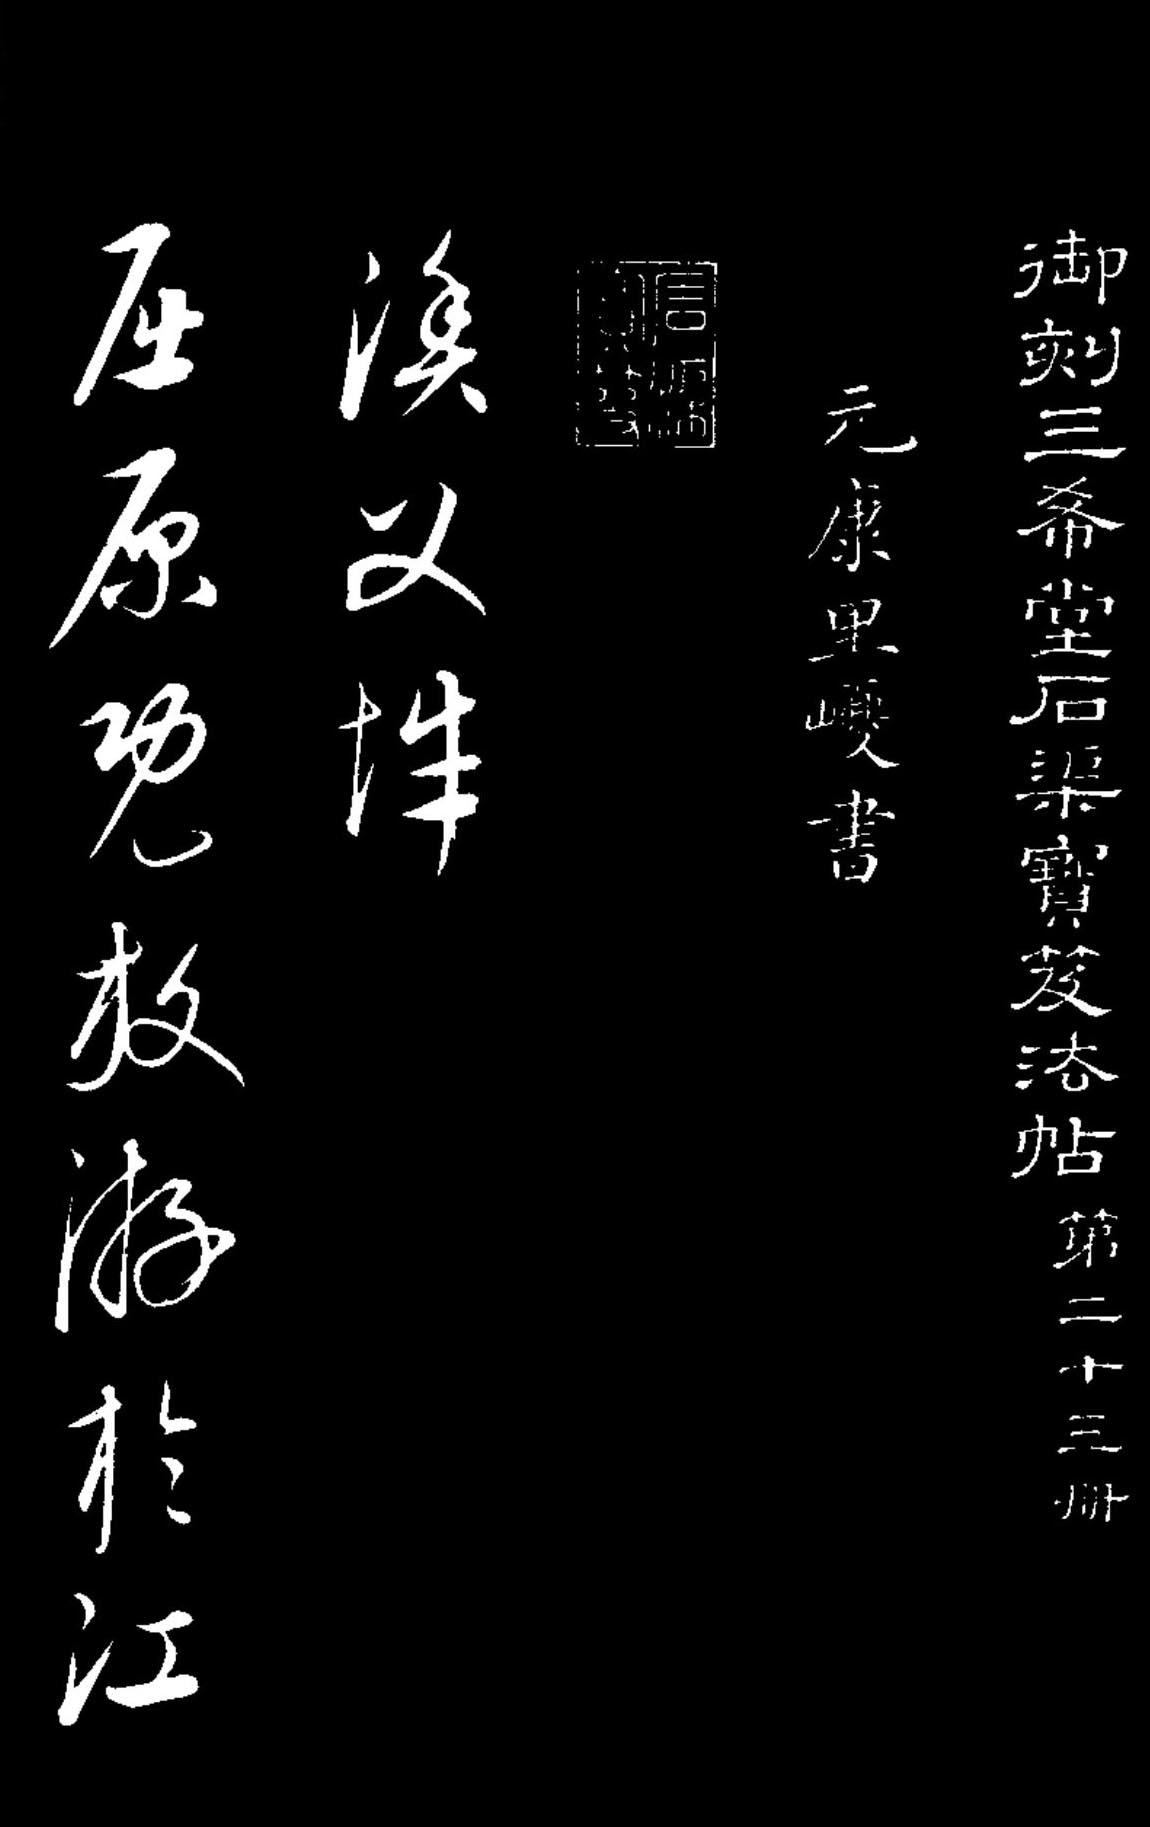 御刻三希堂石渠寶笈法帖 第二十三冊
元康里巎書
漁父辭
屈原既放游於江